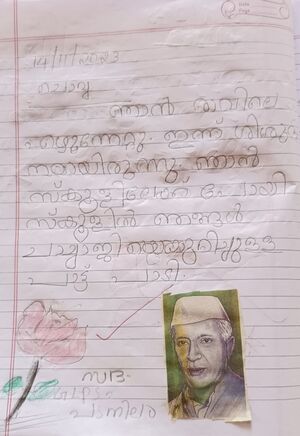 14/11/2023
ചൊവ്വ
ഞാൻ രാവിലെ
എഴുന്നേറ്റു. ഇന്ന് ശിശുദി
നമായിരുന്നു. ഞാൻ
സ്കൂളിലേക്ക് പോയി
സ്കൂളിൽ ഞങ്ങൾ
ചാച്ചാജിയെക്കുറിച്ചുള്ള
പാട്ട് പാടി.